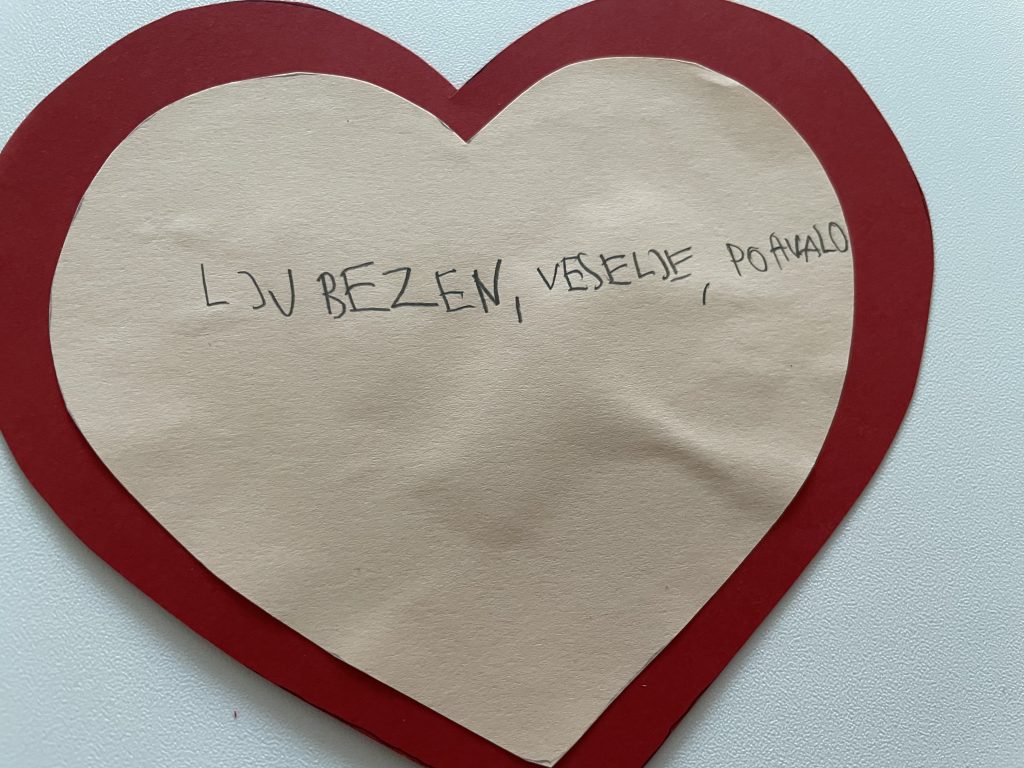 LJUBEZEN, VESELJE, POHVALO